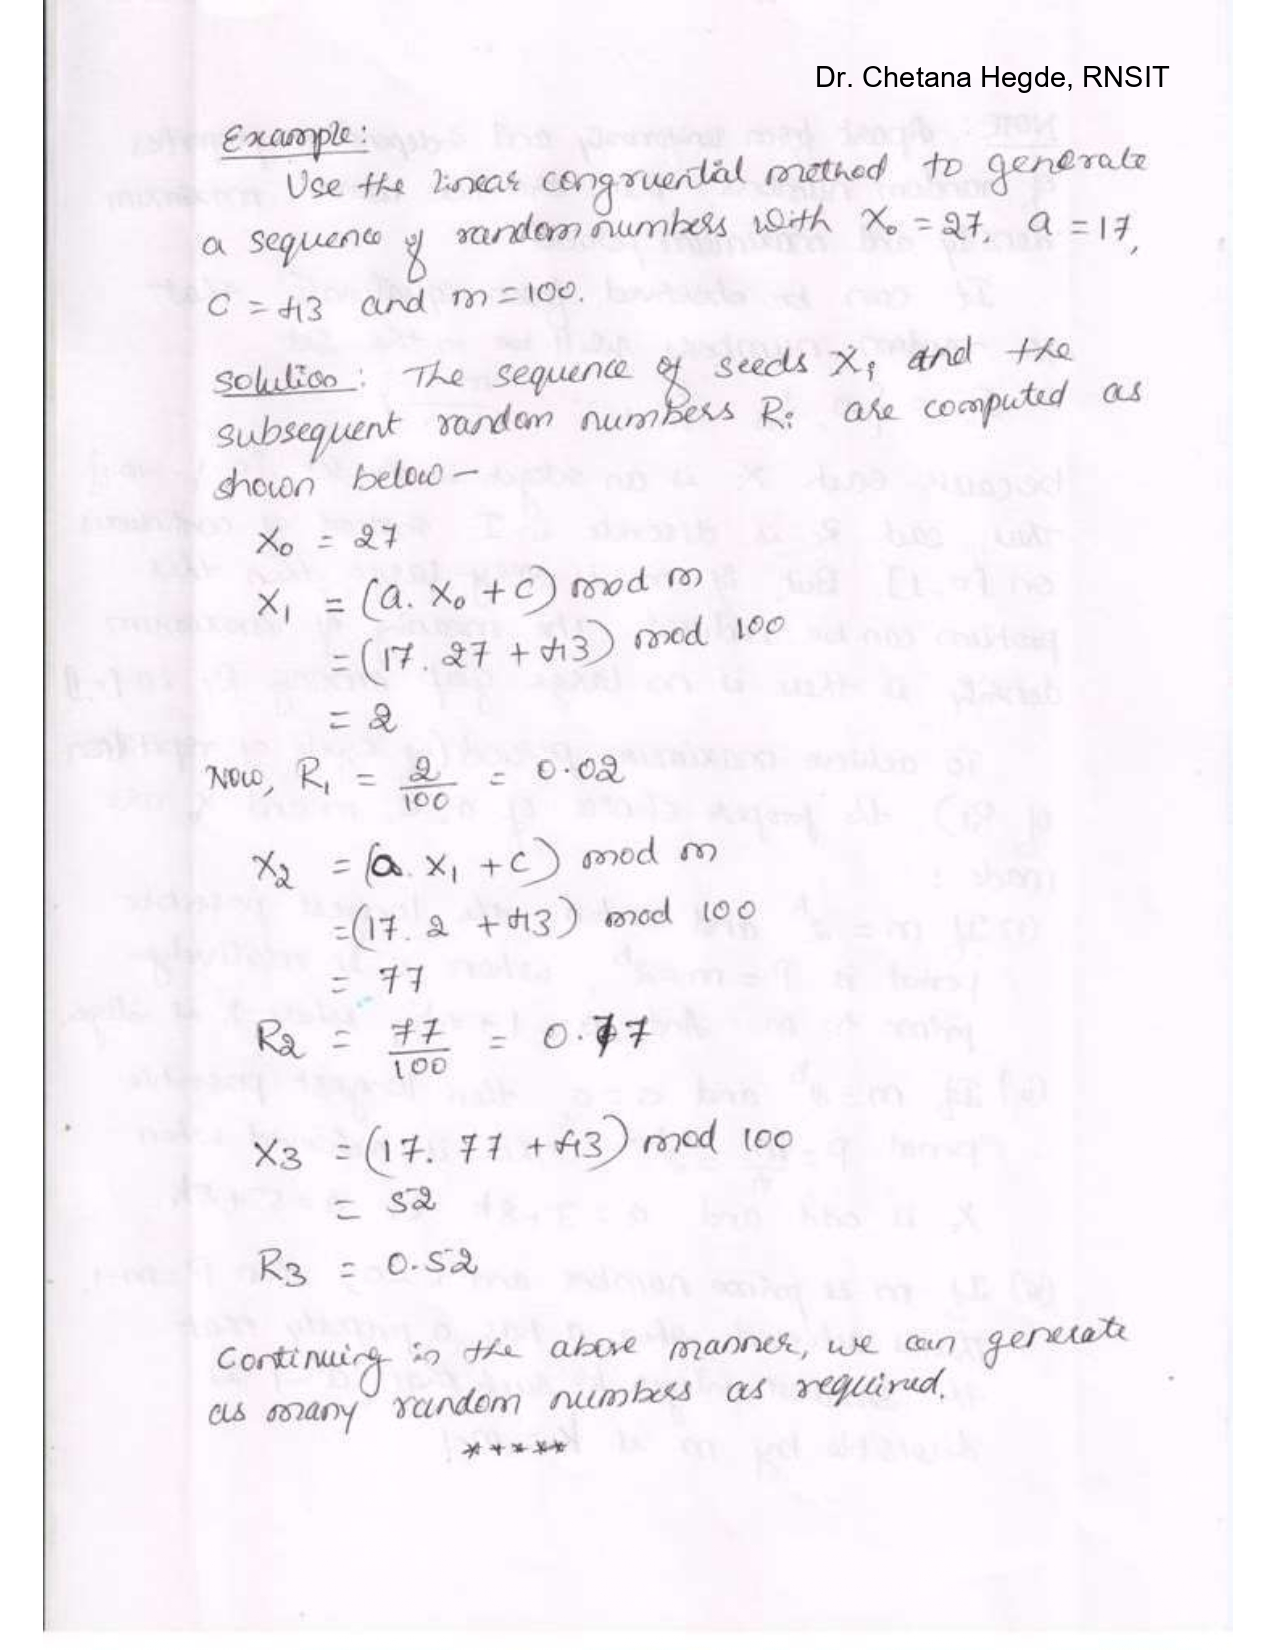 Dr. Chetana Hegde, RNSIT
Example:
Use the linear congruential method to generate
a sequence of random numbers with X₀ = 27, a = 17,
C = 43 and m = 100.
Solution: The sequence of seeds Xᵢ and the
subsequent random numbers Rᵢ are computed as
shown below –
X₀ = 27
X₁ = (a. X₀ + C) mod m
= (17. 27 + 43) mod 100
= 2
Now, R₁ = 2/100 = 0.02
X₂ = (a. X₁ + C) mod m
= (17. 2 + 43) mod 100
= 77
R₂ = 77/100 = 0.77
X₃ = (17. 77 + 43) mod 100
= 52
R₃ = 0.52
Continuing in the above manner, we can generate
as many random numbers as required.
*****